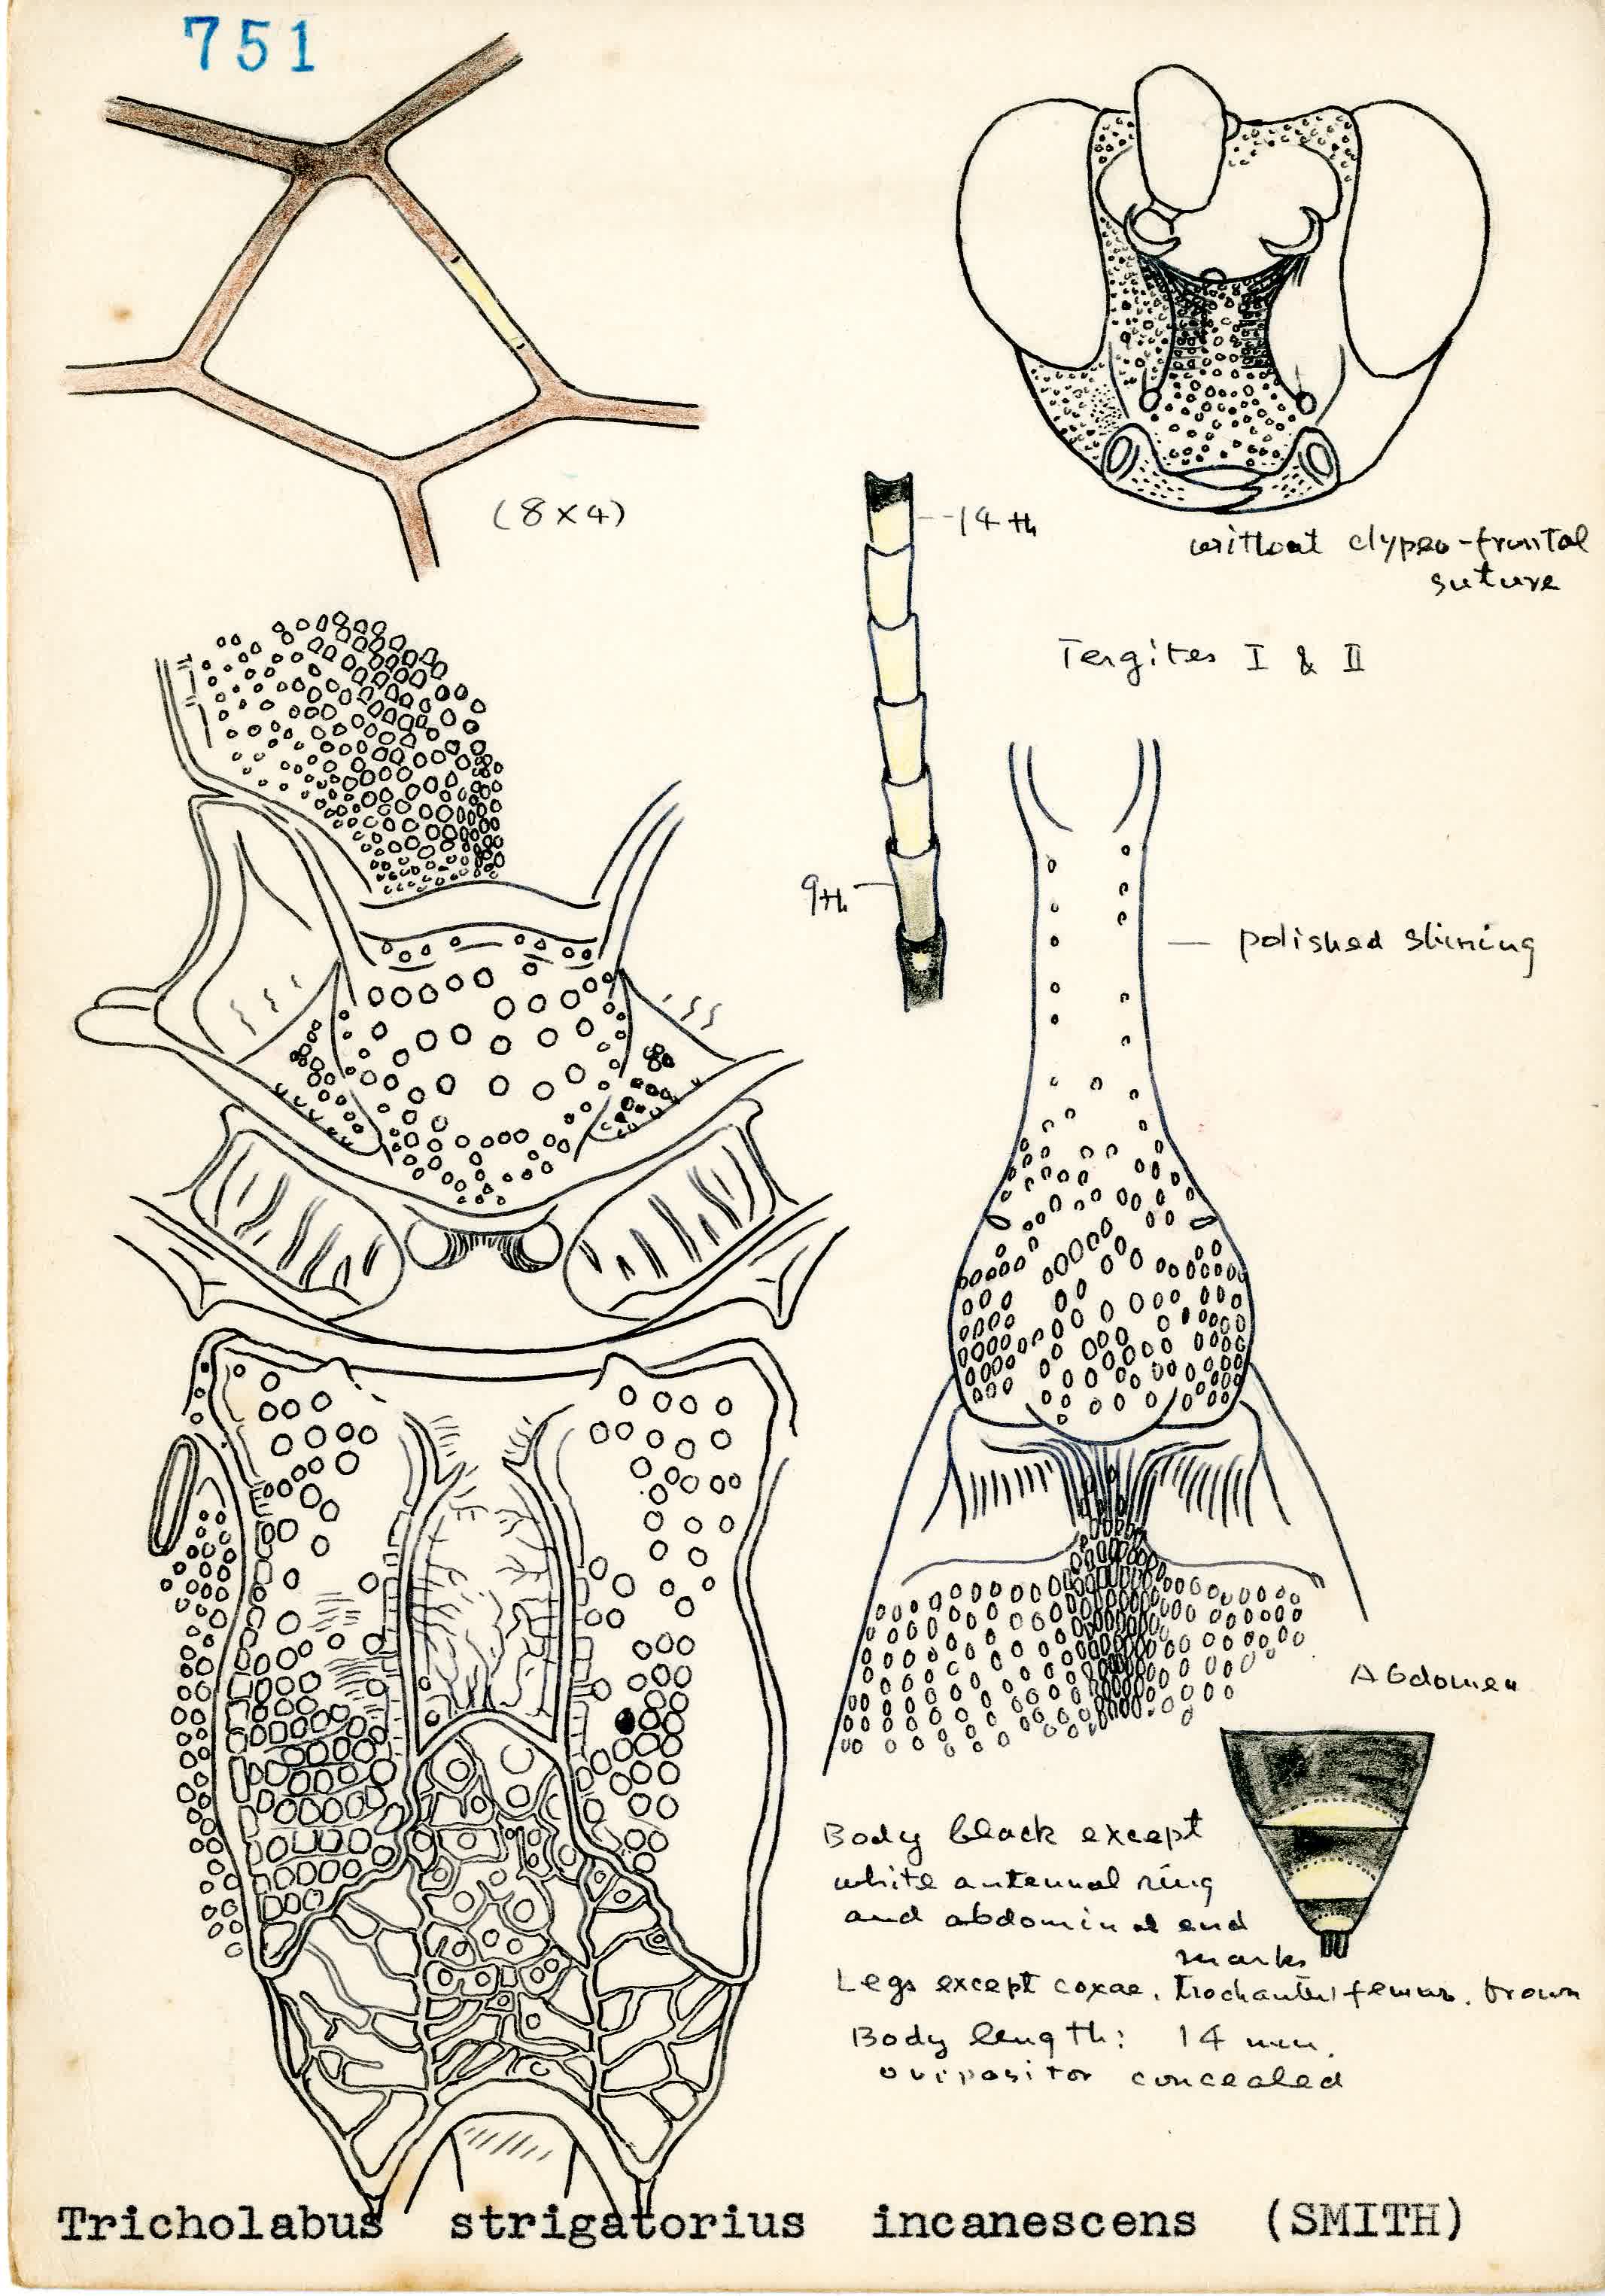 751
(8×4)
14th
without clypeo-frontal
suture
Tergites I & II
9th
polished shining
Abdomen
Body black except
white antennal ring
and abdominal end
marks
Legs except coxae, trochanter, femur, brown
Body length: 14 mm.
ovipositor concealed
Tricholabus strigatorius incanescens (SMITH)